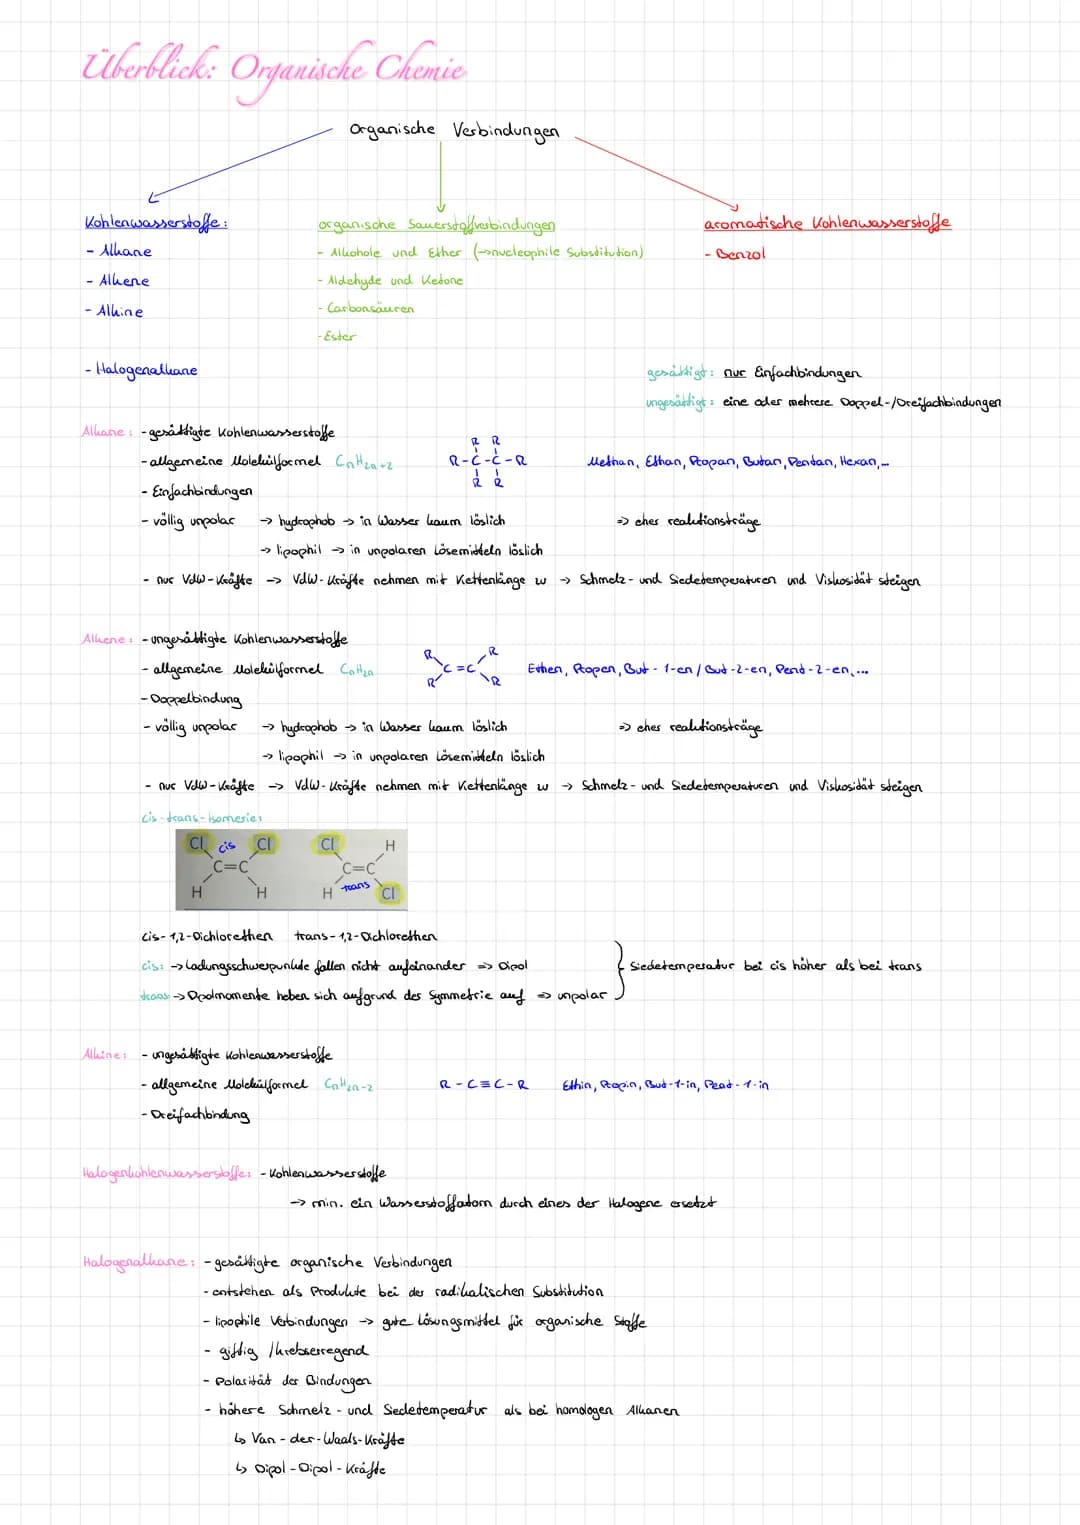 Überblick: Organische Chemie
Organische Verbindungen
Kohlenwasserstoffe:
- Alkane
- Alkene
- Alkine
- Halogenalkane
organische Sauerstoffverbindungen
- Alkohole und Ether (→nucleophile Substitution)
- Aldehyde und Ketone
- Carbonsäuren
- Ester
aromatische Kohlenwasserstoffe
- Benzol
gesättigt: nur Einfachbindungen
ungesättigt: eine oder mehrere Doppel-/Dreifachbindungen
Alkane: - gesättigte Kohlenwasserstoffe
- allgemeine Molekülformel CnH2n+2
R R
R-C-C-R
R R
Methan, Ethan, Propan, Butan, Pentan, Hexan,...
- Einfachbindungen
- völlig unpolar → hydrophob → in Wasser kaum löslich => eher reaktionsträge
→ lipophil → in unpolaren Lösemitteln löslich
- nur VdW-Kräfte → VdW-Kräfte nehmen mit Kettenlänge zu → Schmelz- und Siedetemperaturen und Viskosität steigen
Alkene: - ungesättigte Kohlenwasserstoffe
- allgemeine Molekülformel CnH2n
R R
C=C
R R
Ethen, Propen, But-1-en/But-2-en, Pent-2-en,...
- Doppelbindung
- völlig unpolar → hydrophob → in Wasser kaum löslich => eher reaktionsträge
→ lipophil → in unpolaren Lösemitteln löslich
- nur VdW-Kräfte → VdW-Kräfte nehmen mit Kettenlänge zu → Schmelz- und Siedetemperaturen und Viskosität steigen
cis-trans-Isomerie:
Cl cis Cl
C=C
H H
Cl H
C=C
H trans Cl
cis-1,2-Dichlorethen trans-1,2-Dichlorethen
cis: → Ladungsschwerpunkte fallen nicht aufeinander => Dipol
trans → Dipolmomente heben sich aufgrund der Symmetrie auf => unpolar
Siedetemperatur bei cis höher als bei trans
Alkine: - ungesättigte Kohlenwasserstoffe
- allgemeine Molekülformel CnH2n-2 R-C≡C-R Ethin, Propin, But-1-in, Pent-1-in
- Dreifachbindung
Halogenkohlenwasserstoffe: - Kohlenwasserstoffe
→ min. ein Wasserstoffatom durch eines der Halogene ersetzt
Halogenalkane: - gesättigte organische Verbindungen
- entstehen als Produkte bei der radikalischen Substitution
- lipophile Verbindungen → gute Lösungsmittel für organische Stoffe
- giftig /krebserregend
- Polarität der Bindungen
- höhere Schmelz- und Siedetemperatur als bei homologen Alkanen
↳ Van-der-Waals-Kräfte
↳ Dipol-Dipol-Kräfte